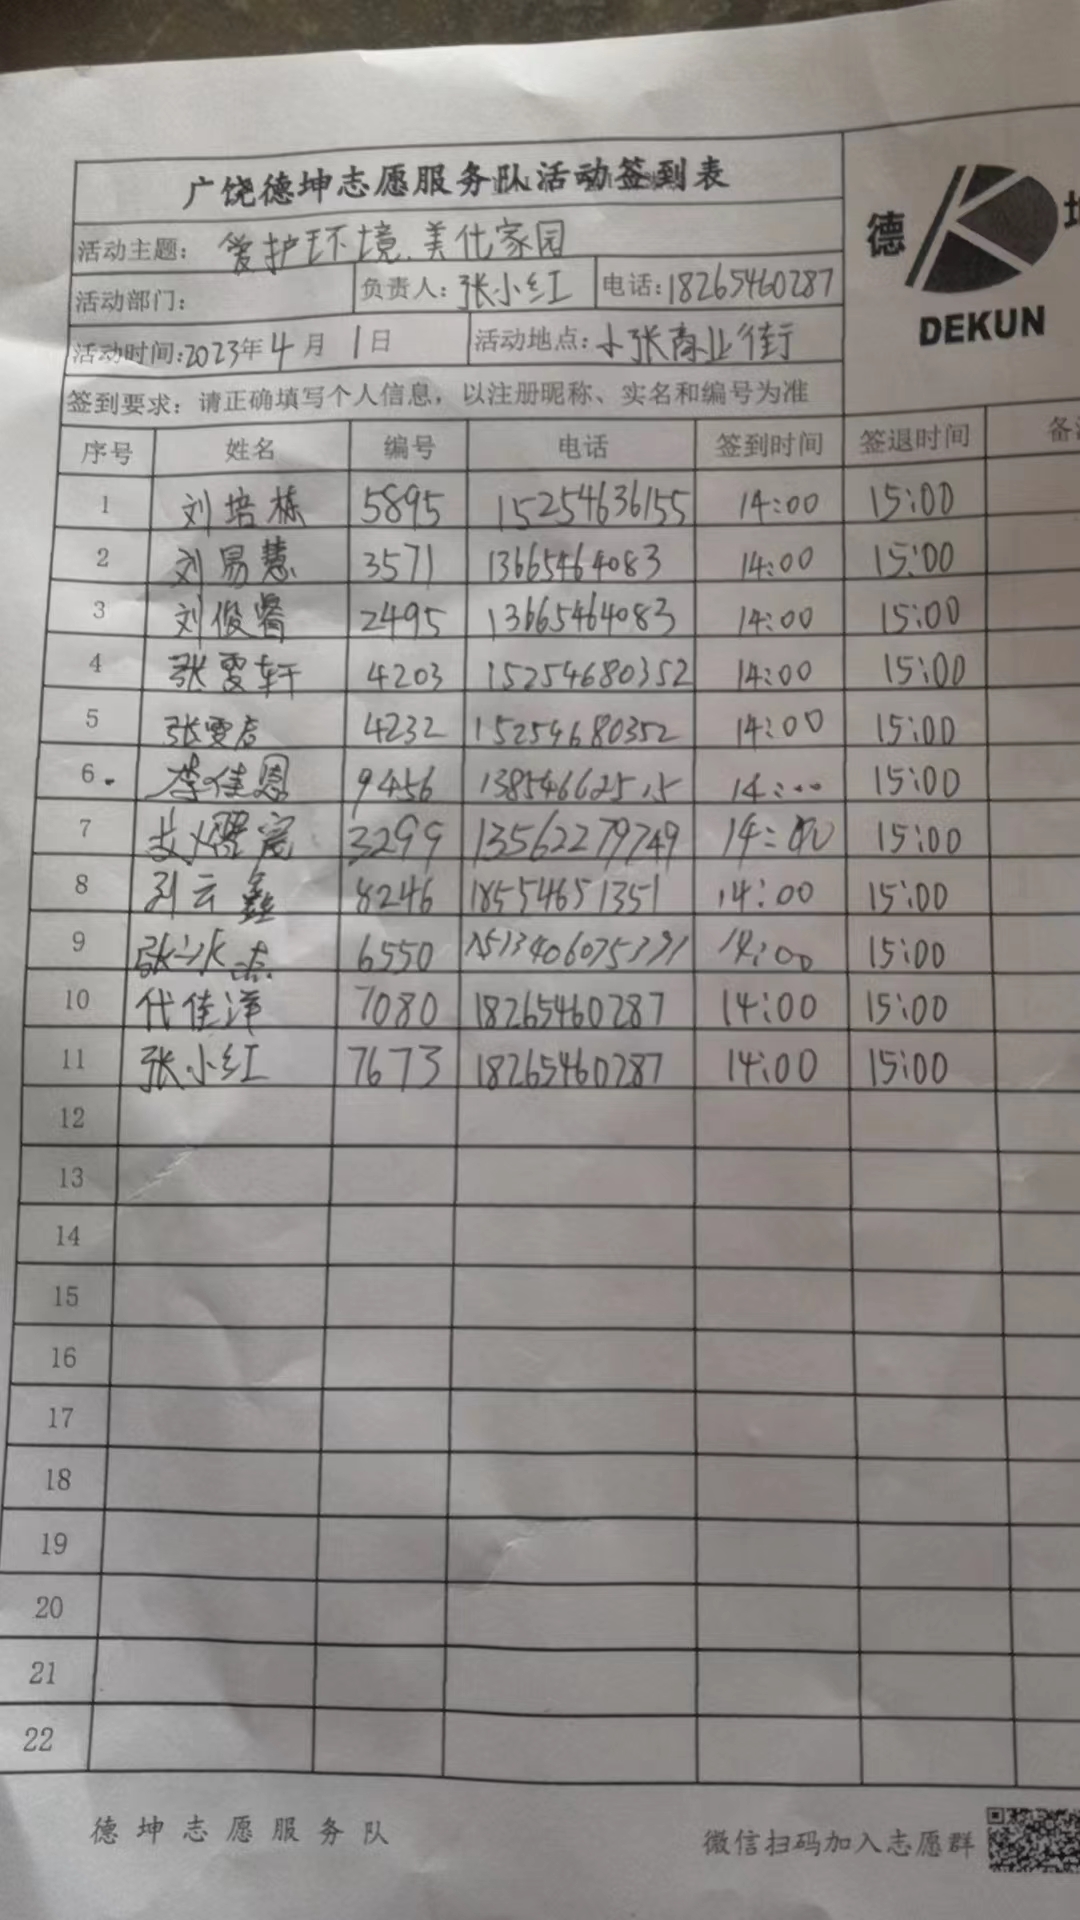 广饶德坤志愿服务队活动签到表
活动主题: 爱护环境.美化家园
活动部门: 负责人: 张小红 电话:18265460287
活动时间:2023年4月1日 活动地点: 小张商业街
签到要求: 请正确填写个人信息, 以注册昵称、实名和编号为准
德 坤
DEKUN
序号 姓名 编号 电话 签到时间 签退时间 备
1 刘培栋 5895 15254636155 14:00 15:00
2 刘易慧 3571 13665464083 14:00 15:00
3 刘俊贤 2495 13665464083 14:00 15:00
4 张雯轩 4203 15254680352 14:00 15:00
5 张雯 4232 15254680352 14:00 15:00
6. 李佳恩 9456 13854662515 14:00 15:00
7 3299 13562279749 14:00 15:00
8 刘云鑫 8246 18554651351 14:00 15:00
9 张 6550 14:00 15:00
10 代佳洋 7080 18265460287 14:00 15:00
11 张小红 7673 18265460287 14:00 15:00
12
13
14
15
16
17
18
19
20
21
22
德坤志愿服务队 微信扫码加入志愿群